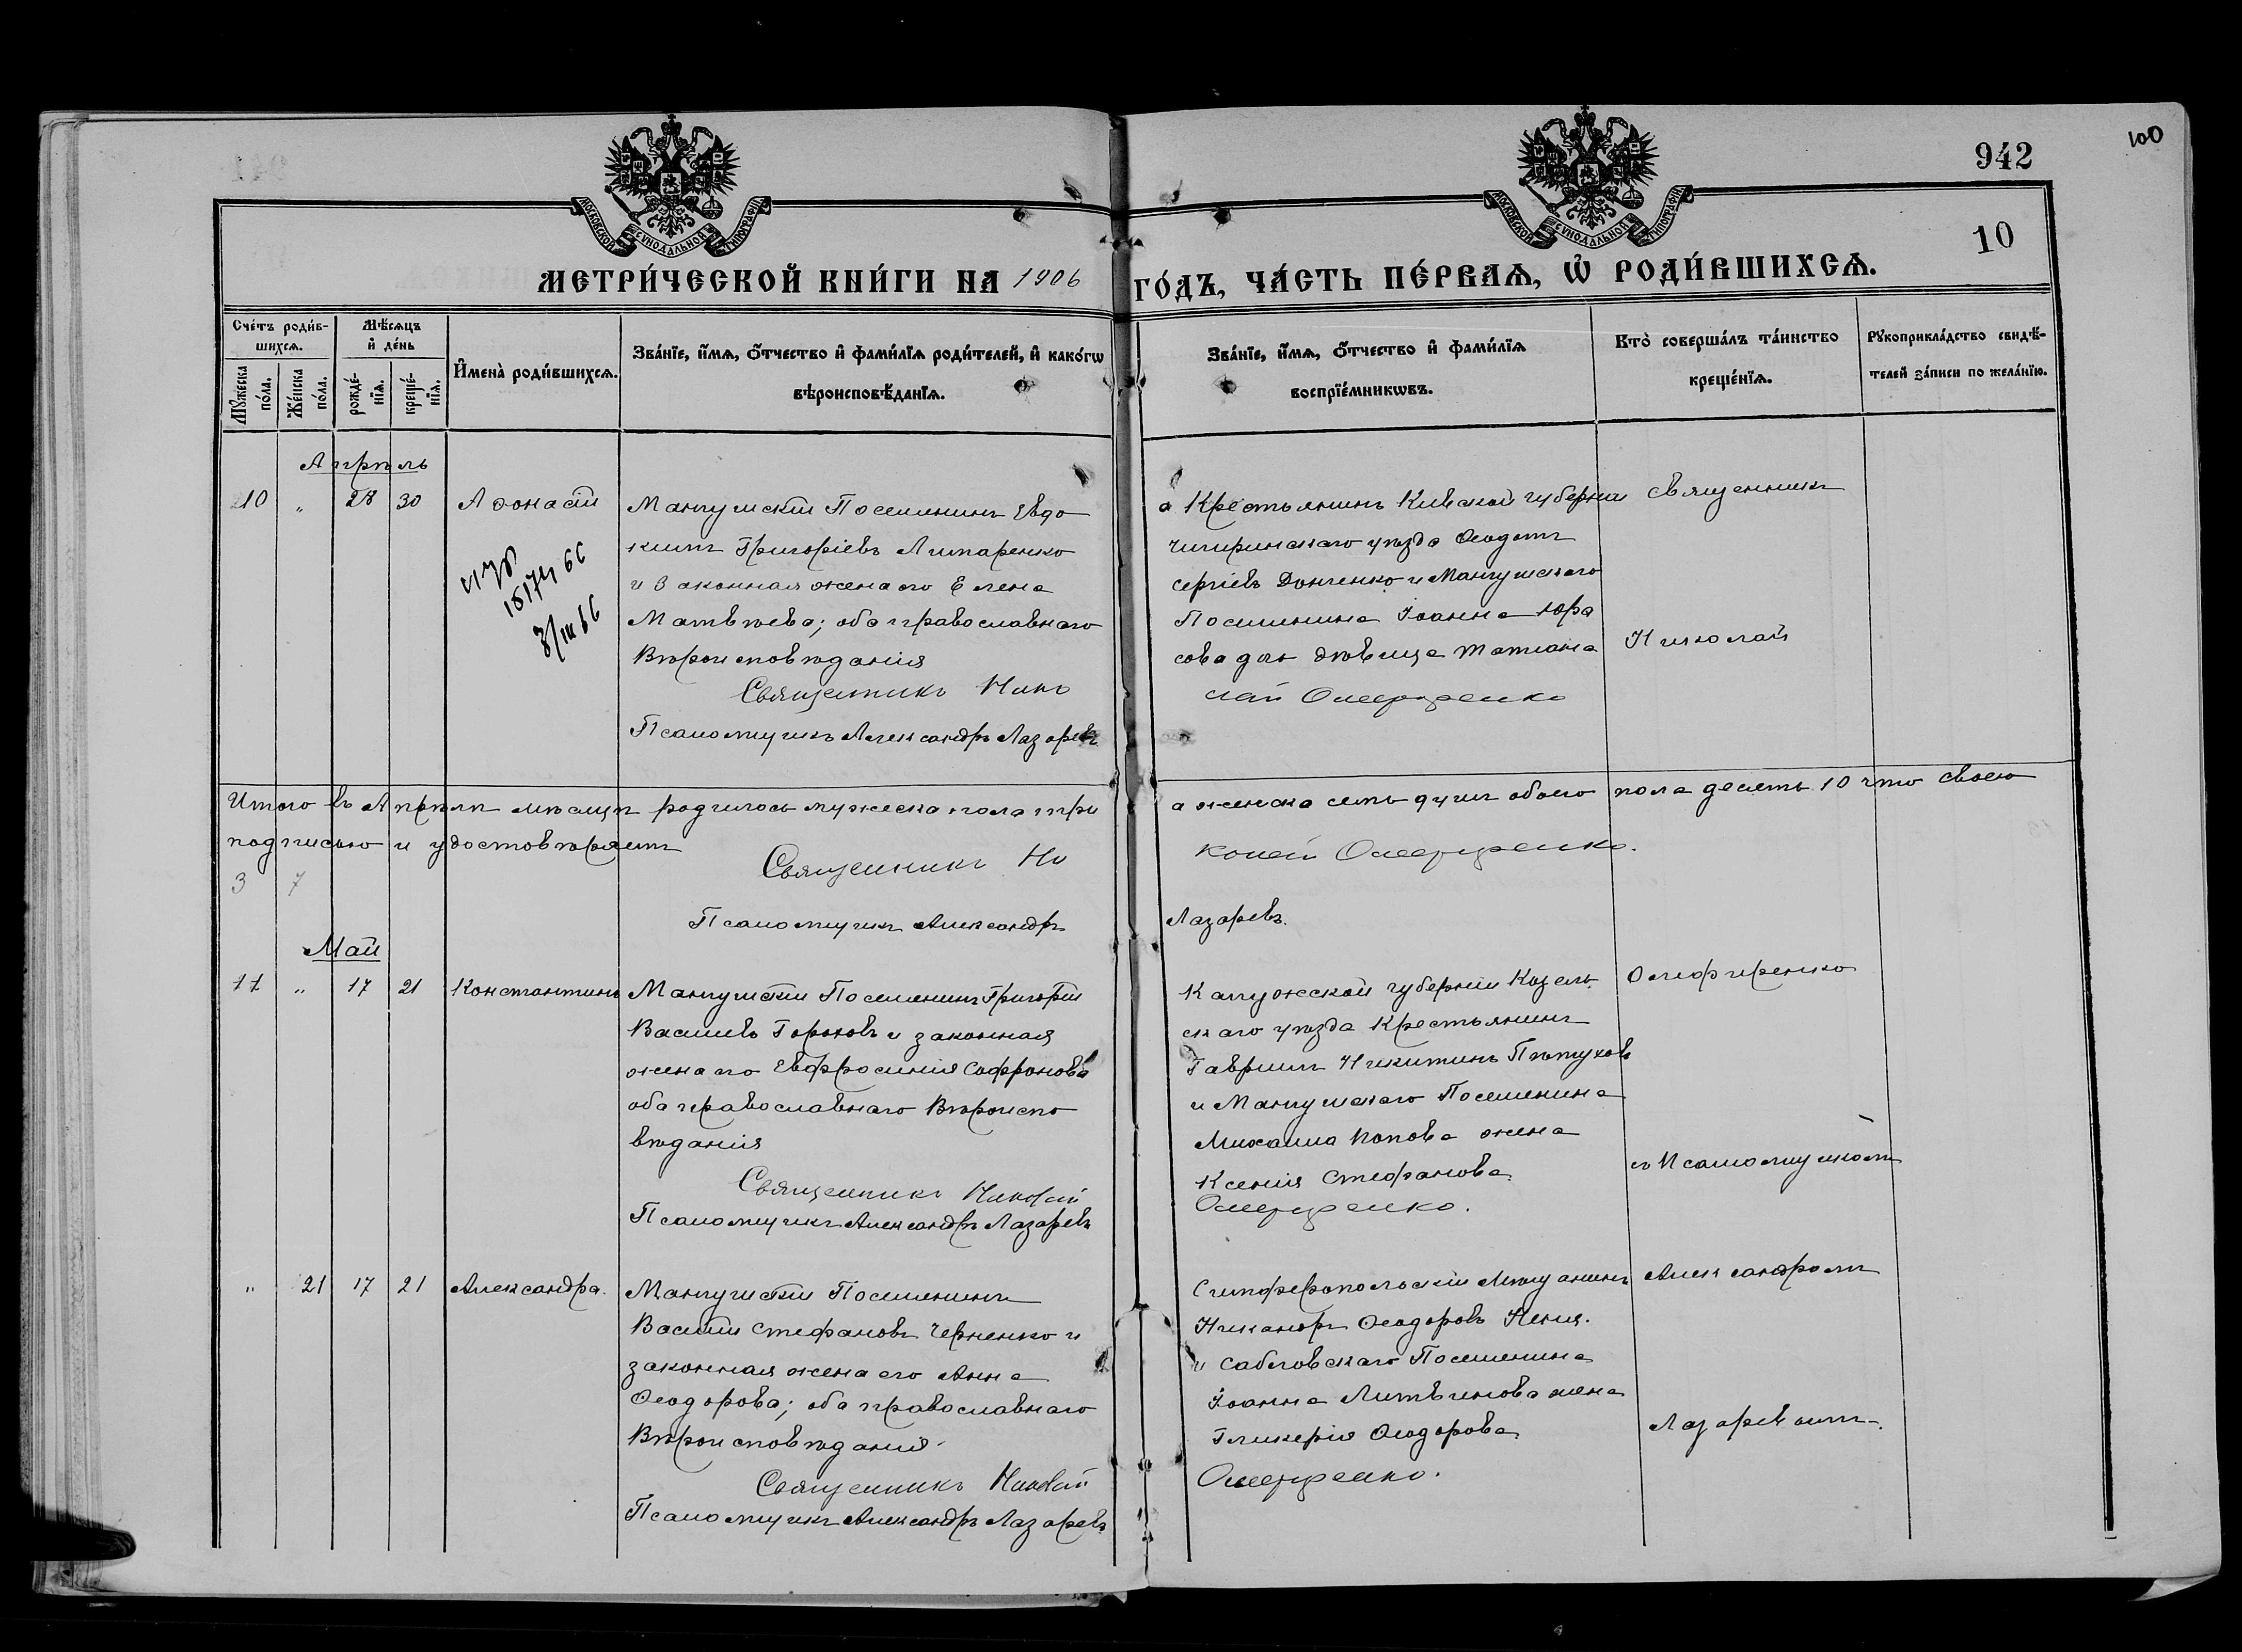 100
942
10
МОСКОВСКОЙ СУНОДАЛЬНОЙ ТИПОГРАФІИ
МОСКОВСКОЙ СУНОДАЛЬНОЙ ТИПОГРАФІИ
МЕТРИ́ЧЕСКОЙ КНИ́ГИ НА 1906 ГО́ДЪ, ЧА́СТЬ ПЕ́РВАѦ, Ѡ҆ РОДИ́ВШИХСѦ.
Сче́тъ роди́в-
шихсѧ.
Мꙋ́жеска по́ла.
Же́нска по́ла.
Мѣ́сѧцъ
и҆ де́нь
рожде́-нїѧ.
креще́-нїѧ.
И҆мена̀ роди́вшихсѧ.
Зва́нїе, и҆́мѧ, ѻ҆́тчество и҆ фами́лїѧ роди́телей, и҆ како́гѡ
вѣроисповѣ́данїѧ.
Зва́нїе, и҆́мѧ, ѻ҆́тчество и҆ фами́лїѧ
воспрїе́мникѡвъ.
Кто̀ соверша́лъ та́инство
креще́нїѧ.
Рꙋкоприкла́дство свидѣ́-
телей за́писи по жела́нїю.
Апрѣль
10 " 28 30 Аѳонасій
Мангушскій Поселянинъ Евдо
кимъ Григоріевъ Литаренко
и Законная жена его Елена
Матвѣева; оба православнаго
Вѣроисповѣданія
Священникъ Нико
Псаломщикъ Александръ Лазаревъ
Крестьянинъ Кіевской губерніи
Чигиринскаго уѣзда Ѳеодотъ
Сергіевъ Донченко и Мангушскаго
Поселянина Іоанна Юра
сова дочь дѣвица Татіана
лай Олефиренко
Священникъ
Николай
Итого въ Апрѣлѣ мѣсяцѣ родилось мужеска пола три а женска семь душъ обоего пола десять 10 что своею
подписью и удостовѣряемъ
Священникъ Ни колай Олефиренко.
3 7
Псаломщикъ Александръ Лазаревъ.
Май
11 " 17 21 Константинъ
Мангушскій Поселянинъ Григорій
Васильевъ Гороховъ и законная
жена его Евфросинія Софронова
оба православнаго Вѣроиспо
вѣданія
Священникъ Николай
Псаломщикъ Александръ Лазаревъ
Калужской губерніи Козель
скаго уѣзда Крестьянинъ
Гавриилъ Никитинъ Пѣтуховъ
и Мангушскаго Поселянина
Михаила Попова жена
Ксенія Стефанова
Олефиренко.
Олефиренко
съ Псаломщикомъ
" 21 17 21 Александра.
Мангушскій Поселянинъ
Василій Стефановъ Черненко и
законная жена его Анна
Ѳеодорова; оба православнаго
Вѣроисповѣданія
Священникъ Николай
Псаломщикъ Александръ Лазаревъ
Симферопольскій Мѣщанинъ
Никаноръ Ѳеодоровъ
и Сабловскаго Поселянина
Іоанна Литвинова жена
Гликерія Ѳеодорова
Олефиренко.
Александромъ
Лазаревымъ.